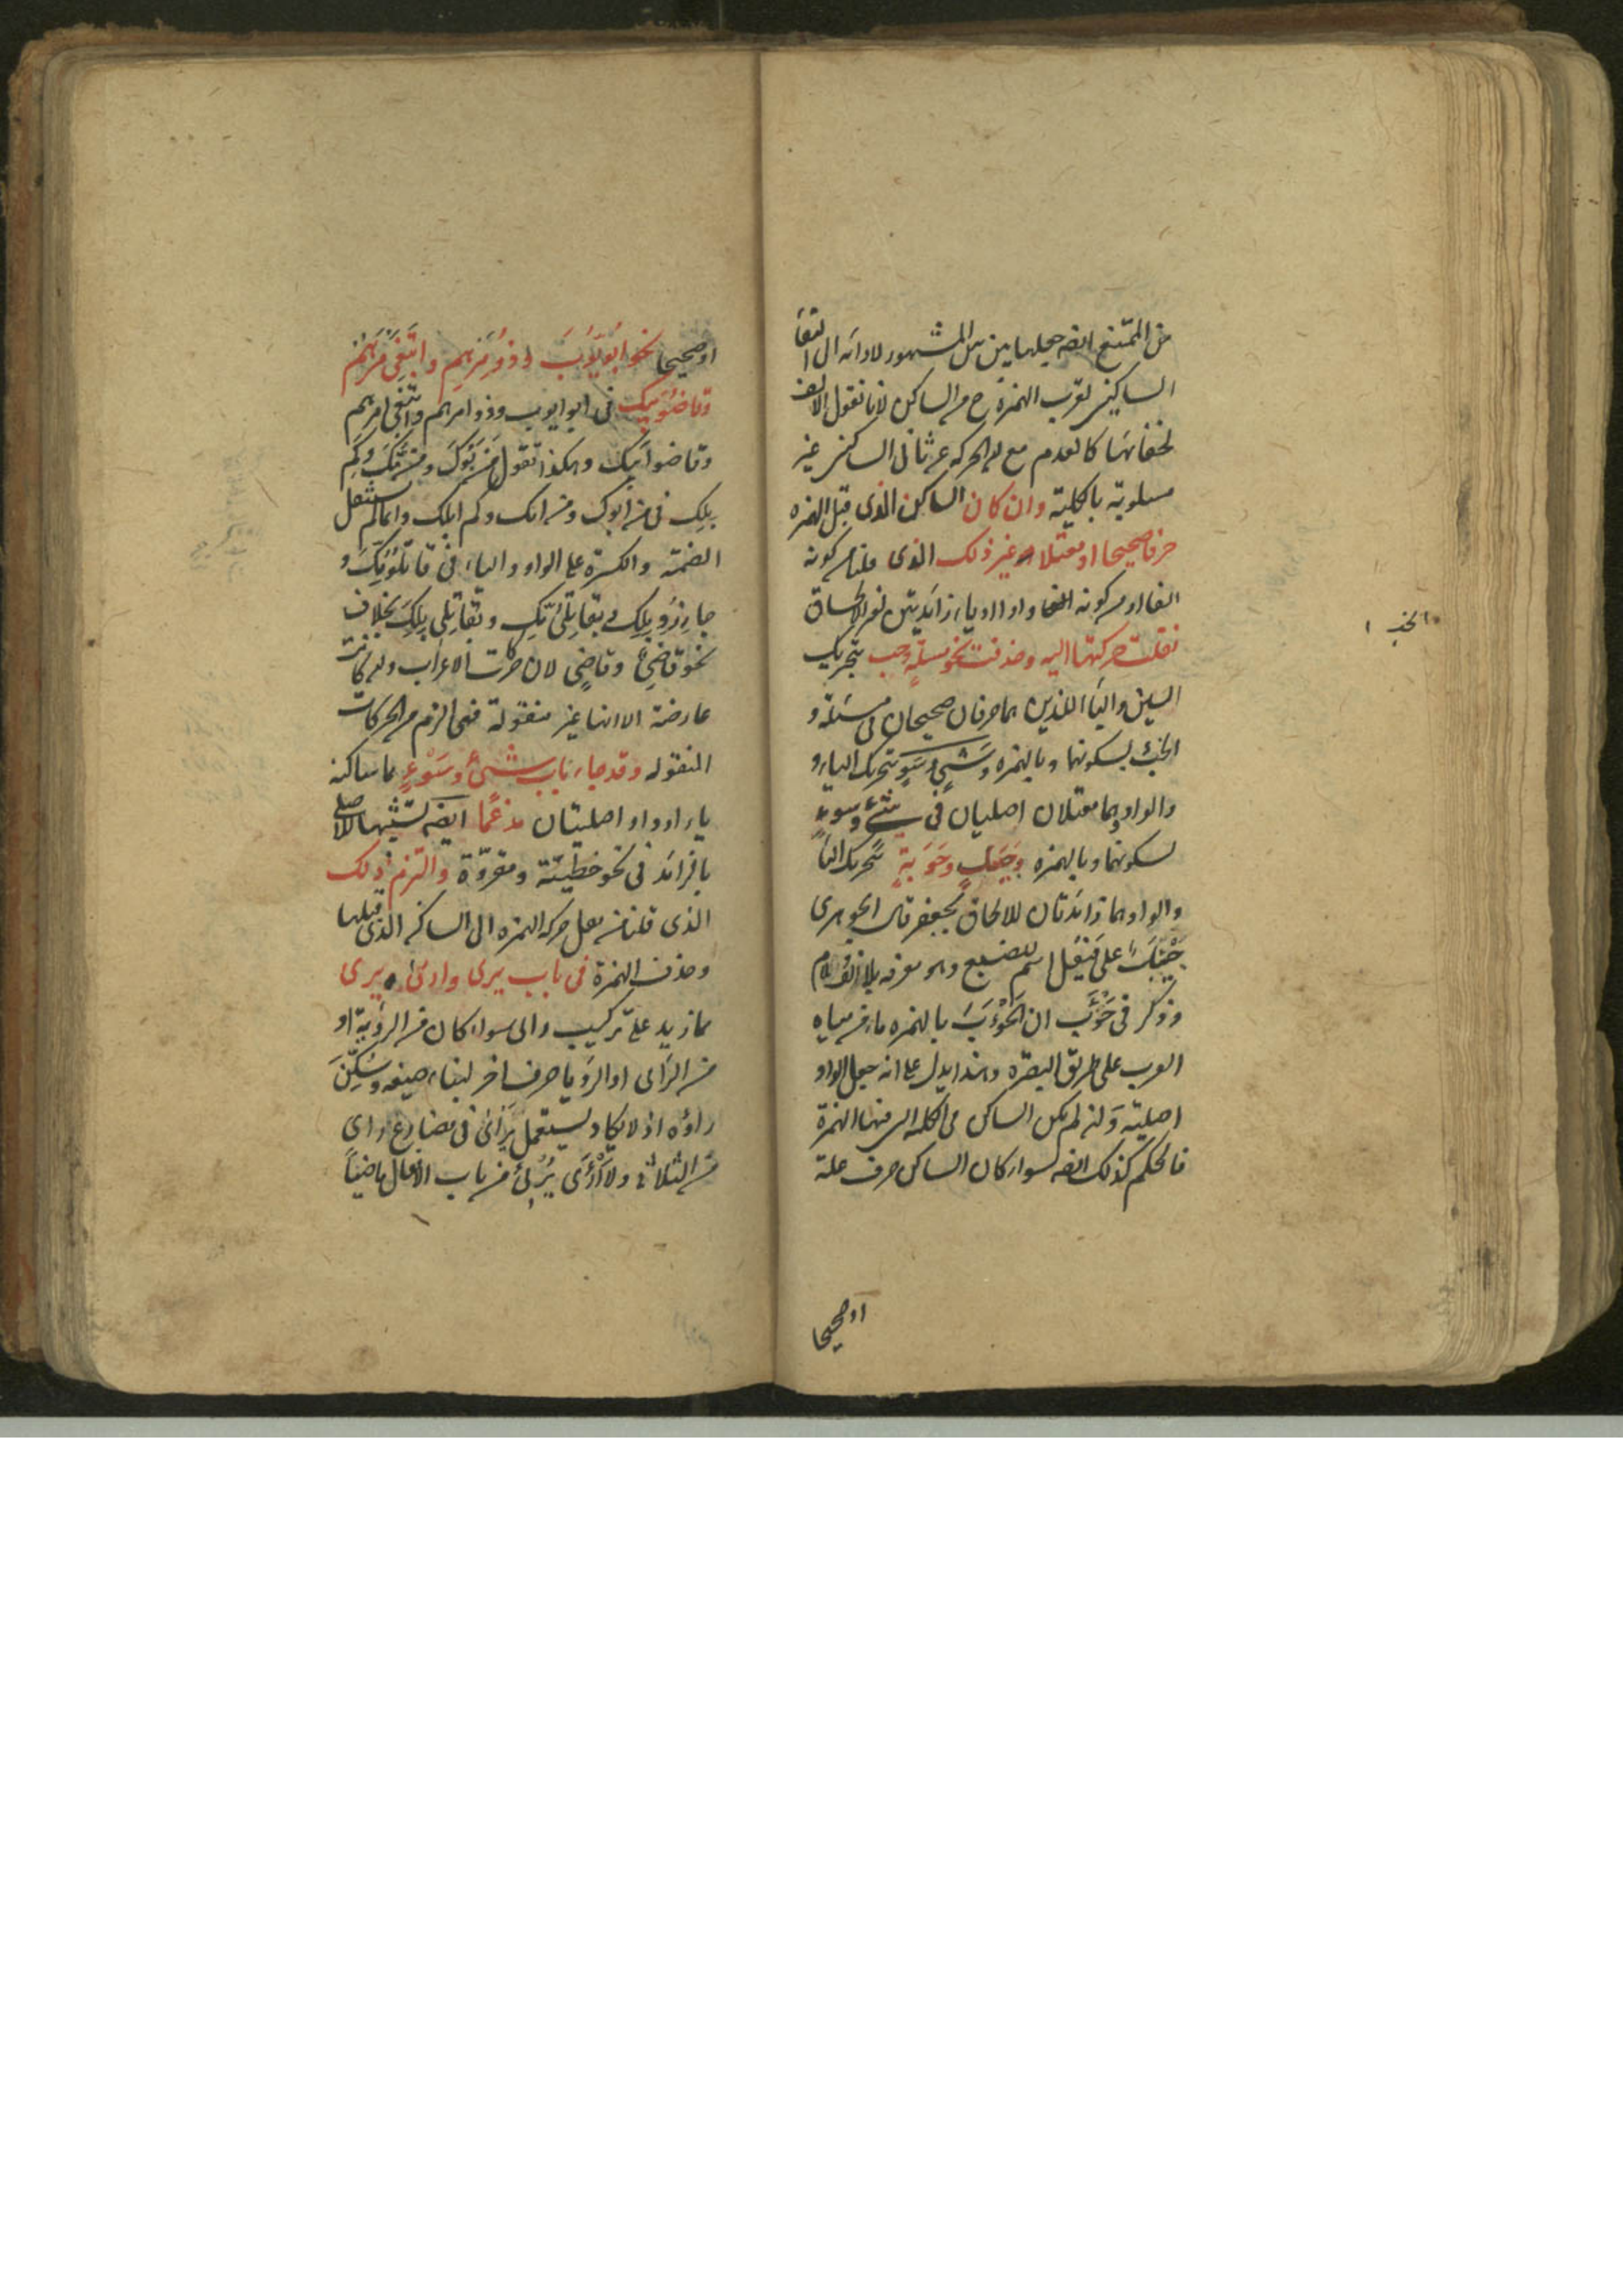 من الممتنع ايضه جعلها بين بين المشهور لادائه الى التقا
الساكنين لقرب الهمزة ح من الساكن لانا نقول الالف
لخفائها كالعدم مع ان الحركة عن ثاني الساكنين غير
مسلوبة بالكلية وان كان الساكن الذى قبل الهمزه
حرفا صحيحا او معتلا غير ذلك الذى قلنا من كونه
الفا او من كونه واوا او ياء زائدتين لغير الالحاق
نقلت حركتها اليه وحذفت نحو مسلة وخب بتحريك
السين والباء اللذين هما حرفان صحيحان فى مسئلة و
الخبء بسكونهما وبالهمزه وشى وسو بتحريك الياء و
والواو وهما معتلان اصليان فى شىء وسوء
بسكونهما وبالهمزه وجيل وحوبة بتحريك اليا
والواو وهما زائدتان للالحاق بجعفر قال الجوهرى
جيئل على فيعل اسم للضبع وهو معرفه بلا الف ولام
وذكر فى حوأب ان الحوءب بالهمزه ماء من مياه
العرب على طريق البصره وهذا يدل على انه جعل الواو
اصلية وان لم يكن الساكن فى الكلمه التى منها الهمزة
فالحكم كذلك ايضه سواء كان الساكن حرف علة
اوصحيحا
الخبء
اوصحيحا نحو ابويوب وذومرهم واتبعى مرهم
وقاضوبيك فى ابو ايوب وذو امرهم واتبعى امرهم
وقاضوا ابيك وهكذا تقول من بوك ومن مك وكم
بلك فى من ابوك ومن امك وكم ابلك وانما لم يستثقل
الضمة والكسرة على الواو والياء فى
نحو قاضى وقاضى لان حركات الاعراب وان كانت
عارضة الا انها غير منقولة فهى الزم من الحركات
المنقوله وقد جاء باب شىء وسوء مما ساكنه
ياء او واو اصليتان مدغما ايضه تشبيها للاصلى
بالزائد فى نحو خطيئة ومقروة والتزم ذلك
الذى قلنا من نقل حركه الهمزه الى الساكن الذى قبلها
وحذف الهمزة فى باب يرى وارى يرى
مما زيد على تركيب رأى سواء كان من الرؤية او
من الرأى او الرؤيا حرف اخر لبناء صيغه وسكن
راؤه اذ لا يكاد يستعمل يرأى فى مضارع رأى
من الثلاثى ولا ارأى يرئى من باب الافعال ماضيا